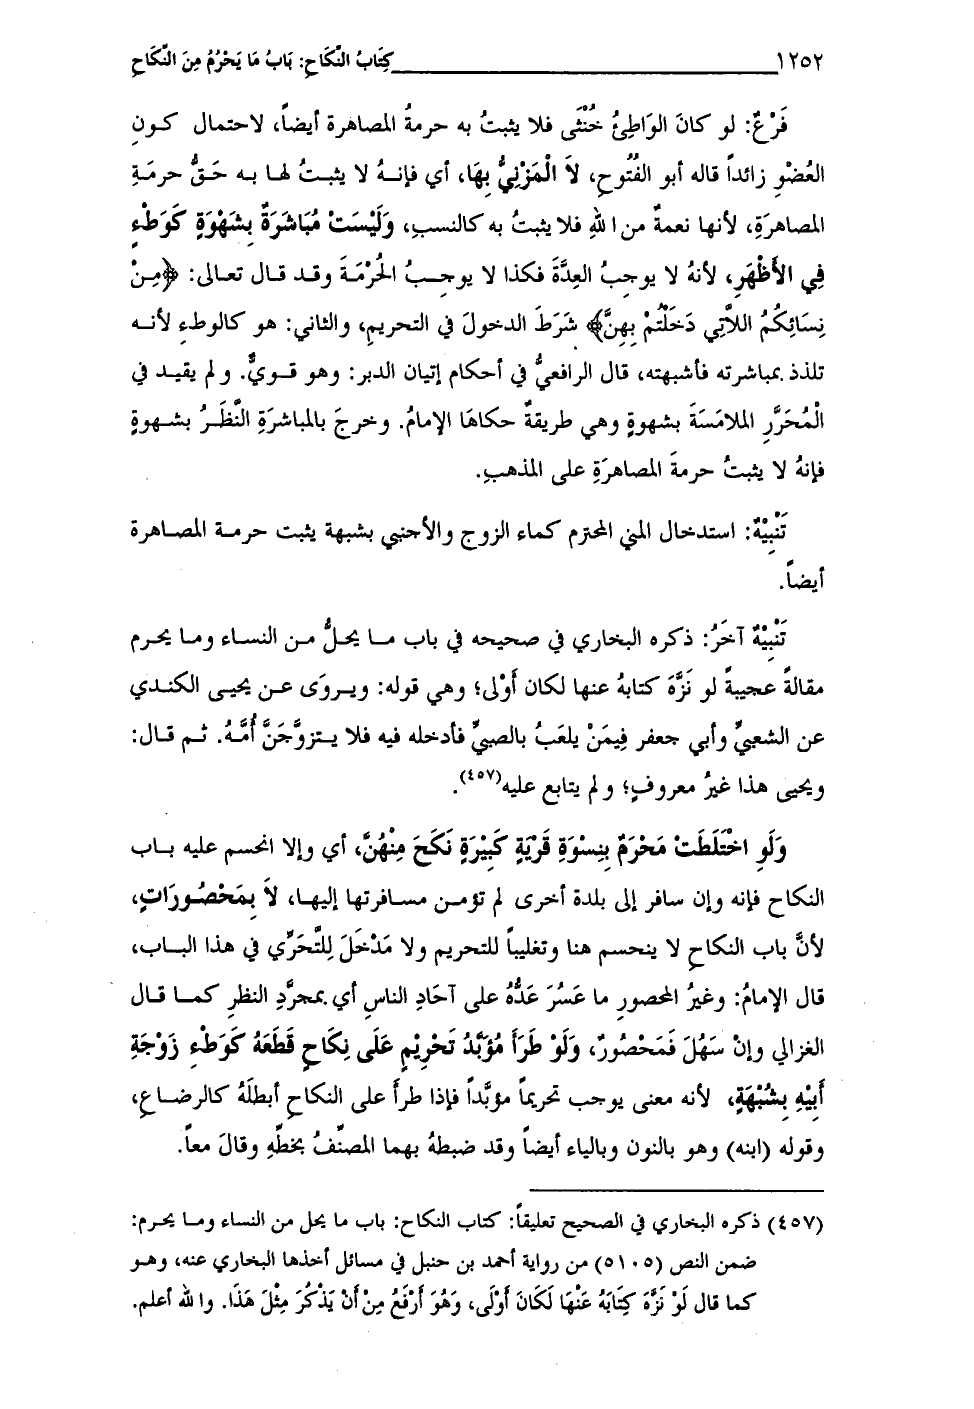 ١٢٥٢ كِتَابُ النِّكَاحِ: بَابُ مَا يَحْرُمُ مِنَ النِّكَاحِ
فَرْعٌ: لو كانَ الوَاطِئُ خُنْثَى فلا يثبتُ به حرمةُ المصاهرة أيضاً، لاحتمال كون
العُضْوِ زائداً قاله أبو الفُتُوحِ، لاَ الْمَزْنِيُّ بِهَا، أي فإنهُ لا يثبتُ لها به حَقُّ حرمةِ
المصاهرَةِ، لأنها نعمةٌ من اللهِ فلا يثبتُ به كالنسبِ، وَلَيْسَتْ مُبَاشَرَةٌ بِشَهْوَةٍ كَوَطْءٍ
فِي الأَظْهَرِ، لأنهُ لا يوجبُ العِدَّةَ فكذا لا يوجبُ الحُرْمَةَ وقد قال تعالى: ﴿مِنْ
نِسَائِكُمُ اللاَّتِي دَخَلْتُمْ بِهِنَّ﴾ شَرَطَ الدخولَ في التحريمِ، والثاني: هو كالوطءِ لأنه
تلذذ بمباشرته فأشبهته، قال الرافعيُّ في أحكام إتيان الدبر: وهو قويٌّ. ولم يقيد في
الْمُحَرَّرِ الملامَسَةَ بشهوةٍ وهي طريقةٌ حكاهَا الإمامُ. وخرجَ بالمباشرَةِ النَّظَرُ بشهوةٍ
فإنهُ لا يثبتُ حرمةَ المصاهرَةِ على المذهبِ.
تَنْبِيْهٌ: استدخال المني المحترم كماء الزوج والأجنبي بشبهة يثبت حرمة المصاهرة
أيضاً.
تَنْبِيْهٌ آخَرُ: ذكره البخاري في صحيحه في باب ما يحلُّ من النساء وما يحرم
مقالةً عجيبةً لو نَزَّهَ كتابهُ عنها لكان أَوْلى؛ وهي قوله: ويروَى عن يحيى الكندي
عن الشعبيِّ وأبي جعفر فِيمَنْ يلعَبُ بالصبيِّ فأدخله فيه فلا يتزوَّجَنَّ أُمَّهُ. ثم قال:
ويحيى هذا غيرُ معروفٍ؛ ولم يتابع عليه(٤٥٧).
وَلَوِ اخْتَلَطَتْ مَحْرَمٌ بِنِسْوَةِ قَرْيَةٍ كَبِيْرَةٍ نَكَحَ مِنْهُنَّ، أي وإلا انحسم عليه باب
النكاح فإنه وإن سافر إلى بلدة أخرى لم تؤمن مسافرتها إليها، لاَ بِمَحْصُورَاتٍ،
لأنَّ باب النكاحِ لا ينحسم هنا وتغليباً للتحريم ولا مَدْخَلَ لِلتَّحَرِّي في هذا الباب،
قال الإمامُ: وغيرُ المحصورِ ما عَسُرَ عَدُّهُ على آحَادِ الناسِ أي بمجرَّدِ النظرِ كما قال
الغزالي وإنْ سَهُلَ فَمَحْصُورٌ، وَلَوْ طَرَأَ مُؤَبَّدُ تَحْرِيْمٍ عَلَى نِكَاحٍ قَطَعَهُ كَوَطْءِ زَوْجَةِ
أَبِيْهِ بِشُبْهَةٍ، لأنه معنى يوجب تحريماً مؤبَّداً فإذا طرأ على النكاحِ أبطلَهُ كالرضاعِ،
وقوله (ابنه) وهو بالنون وبالياء أيضاً وقد ضبطهُ بهما المصنِّفُ بخطِّهِ وقالَ معاً.
(٤٥٧) ذكره البخاري في الصحيح تعليقاً: كتاب النكاح: باب ما يحل من النساء وما يحرم:
ضمن النص (٥١٠٥) من رواية أحمد بن حنبل في مسائل أخذها البخاري عنه، وهو
كما قال لَوْ نَزَّهَ كِتَابَهُ عَنْهَا لَكَانَ أَوْلَى، وَهُوَ أَرْفَعُ مِنْ أَنْ يَذْكُرَ مِثْلَ هَذَا. والله أعلم.